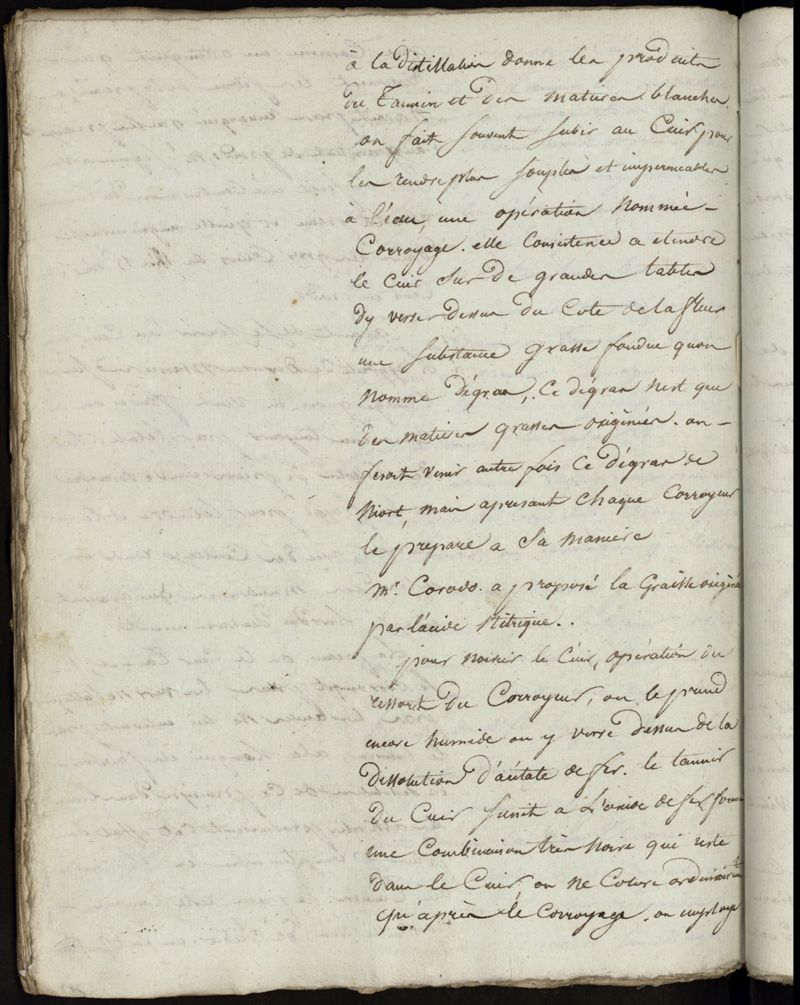 à la distillation donne les produits
du Tannin et des matieres blanches.
on fait souvent subir au Cuir pour
les rendre plus souples et impermeables
à l'eau, une opération Nommée
Corroyage. elle Consistence a etendre
le Cuir sur de grandes tables
dy verser dessus du Coté de la fleur
une substance grasse fondue quon
nomme Dégras, Ce dégras nest que
des matieres grasses oxigénées. on
fesoit venir autre fois Ce dégras de
Niort mais apresant chaque Corroyeur
le prepare a Sa maniere
Mr. a proposé la Graisse oxigéné
par l'acide Nitrique..
pour noircir le Cuir, opération du
ressort du Corroyeur, on le prend
encore humide on y verse dessus de la
dissolution d'acétate de fer. le tannin
du Cuir s'unit a L'oxide de fer forme
une Combinaison très Noire qui reste
dans le Cuir on ne Colore ordinairemt
qu'après le Corroyage. on employe